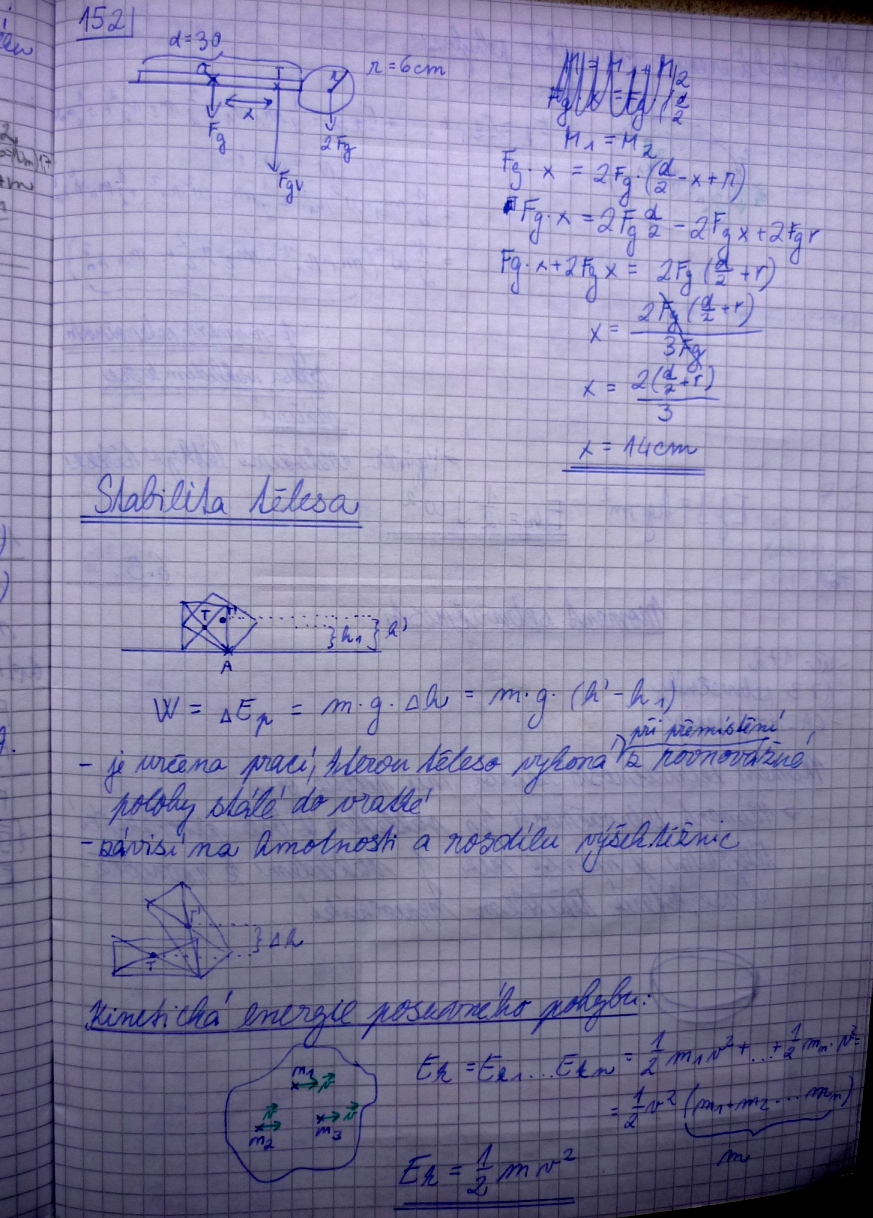 152
d = 30
r = 6cm
x
Fg
2Fg
Fgv
M₁ = M₂
Fg · x = 2Fg · (d/2 - x + r)
Fg · x = 2Fg d/2 - 2Fg x + 2Fg r
Fg · x + 2Fg x = 2Fg (d/2 + r)
x = 2Fg (d/2 + r) / 3Fg
x = 2(d/2 + r) / 3
x = 14cm
Stabilita tělesa
T T'
h₁ h'
A
W = ΔEp = m · g · Δh = m · g · (h' - h₁)
- je určena prací, kterou těleso vykoná při přemístění z rovnovážné
polohy stálé do vratké
- závisí na hmotnosti a rozdílu výšek těžnic
T'
T
Δh
Kinetická energie posuvného pohybu:
m₁ v
v v
m₂ m₃
Ek = Ek₁ ... Ekn = 1/2 m₁v² + ... + 1/2 mn · v² =
= 1/2 v² (m₁ + m₂ ... mn)
m
Ek = 1/2 m v²